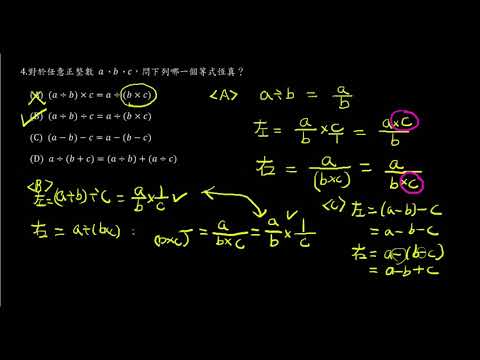 4.對於任意正整數 a、b、c,問下列哪一個等式恆真?
(A) (a ÷ b) × c = a ÷ (b × c)
(B) (a ÷ b) ÷ c = a ÷ (b × c)
(C) (a − b) − c = a − (b − c)
(D) a ÷ (b + c) = (a ÷ b) + (a ÷ c)
<A> a÷b = a/b
左 = a/b × c/1 = a×c/b
右 = a/(b×c) = a/b×c
<B>
左=(a÷b)÷c = a/b × 1/c ✓
右 = a÷(b×c) = a/(b×c) = a/b×c = a/b × 1/c ✓
<C> 左 = (a-b)-c
= a-b-c
右 = a-(b-c)
= a-b+c